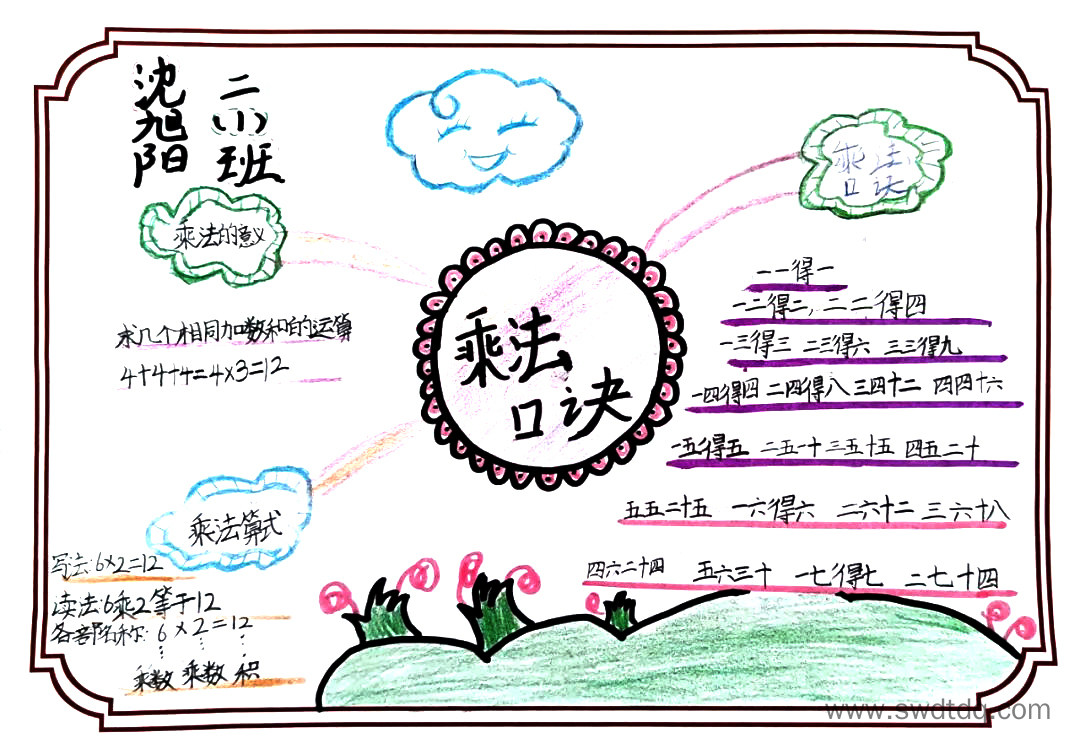 沈旭阳
二(1)班
乘法的意义
求几个相同加数和的运算
4+4+4=4×3=12
乘法口诀
乘法口诀
一一得一
一二得二, 二二得四
一三得三 二三得六 三三得九
一四得四 二四得八 三四十二 四四十六
一五得五 二五一十 三五十五 四五二十
五五二十五 一六得六 二六十二 三六十八
四六二十四 五六三十 一七得七 二七十四
乘法算式
写法:6×2=12
读法:6乘2等于12
各部名称: 6×2=12
乘数 乘数 积
www.swdtdq.com